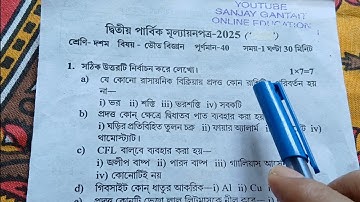 YOUTUBE
SANJAY GANTAIT
ONLINE EDUCATION
দ্বিতীয় পার্বিক মূল্যায়নপত্র-২০২
শ্রেণি- দশম বিষয় - ভৌত বিজ্ঞান পূর্ণমান-40 সময়-1 ঘন্টা 30 মিনিট
1. সঠিক উত্তরটি নির্বাচন করে লেখো। 1×7=7
a) যে কোনো রাসায়নিক বিক্রিয়ায় প্রদত্ত কোন পরিবর্তন হয়
না—
i) ভর ii) শক্তি iii) ভরশক্তি iv) সবকটি
b) প্রদত্ত কোন্ ক্ষেত্রে দ্বিধাতব পাত ব্যবহার করা হয়
i) ঘড়ির প্রতিবিহিত তুলন চক্র ii) ফায়ার অ্যালার্ম iv)
থার্মোস্ট্যাট।
c) CFL বাল্বে ব্যবহার করা হয়—
i) জলীয় বাষ্প ii) পারদ বাষ্প iii) গ্যালিয়াম
iv) কোনোটিই নয়
d) গিবসাইট কোন্ ধাতুর আকরিক—i) Al ii) Cu